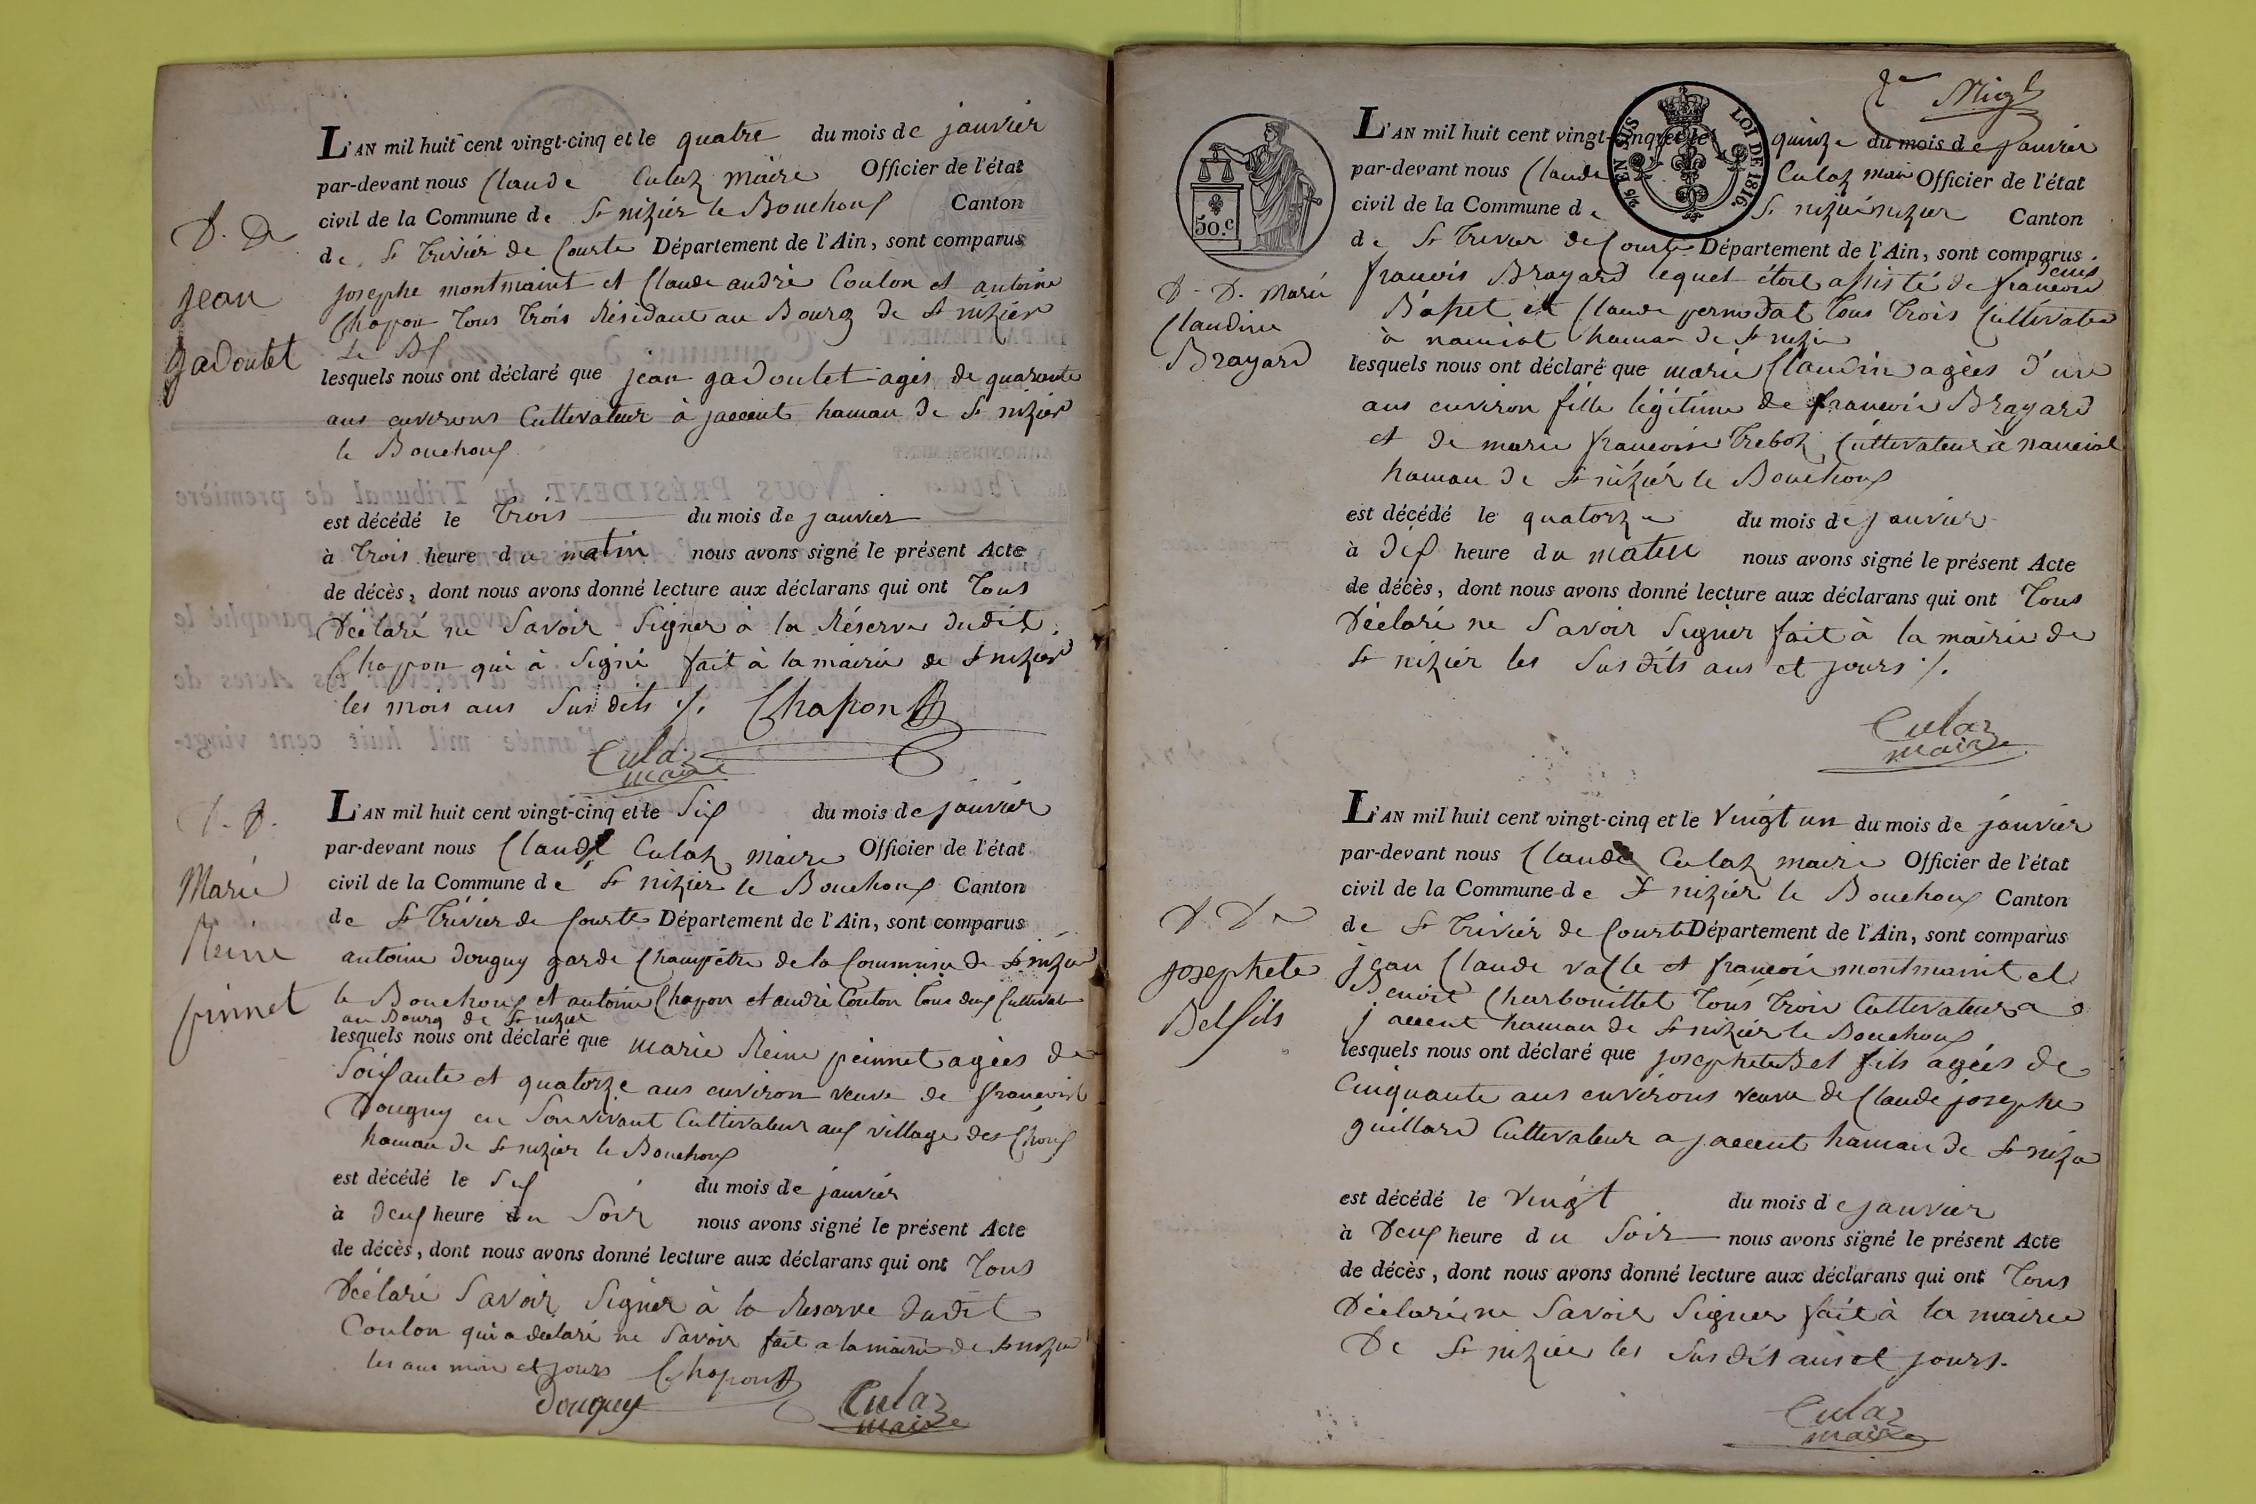 D. De
jean
gadoulet
L'AN mil huit cent vingt-cinq et le quatre du mois de janvier
par-devant nous Claude Culaz maire Officier de l'état
civil de la Commune de St nizier le Bouchoux Canton
de St Trivier de Courte Département de l'Ain, sont comparus
josephe montmaint et Claude andrè Coulon et antoine
Chapon Tous Trois Résidant au Bourg de St nizier
Le Bx
lesquels nous ont déclaré que jean gadoulet agés de quarante
ans environs Cultivateur à jaccent hamau de St nizier
le Bouchoux
est décédé le Trois du mois de janvier
à Trois heure du matin nous avons signé le présent Acte
de décès, dont nous avons donné lecture aux déclarans qui ont Tous
Déclaré ne Savoir Signer à la Réserve dudit
Chapon qui à Signé fait à la mairie de St nizier
les mois ans Sus dits ./. Chapon
Culaz
maire
D. D.
Marie
Reine
pinnet
L'AN mil huit cent vingt-cinq et le Six du mois de janvier
par-devant nous Claude Culaz maire Officier de l'état
civil de la Commune de St nizier le Bouchoux Canton
de St Trivier de Courte Département de l'Ain, sont comparus
antoine douguy garde Champétre de la Commune de St nizie
le Bouchoux et antoine Chapon et andrè Coulon Tous deux Cultivat
au Bourg de St nizier
lesquels nous ont déclaré que marie Reine peinnet agées de
Soixante et quatorze ans environ veuve de francois
Douguy en Sonvivant Cultivateur aux village des Choux
hamau de St nizier le Bouchoux
est décédé le Six du mois de janvier
à deux heure du Soir nous avons signé le présent Acte
de décès, dont nous avons donné lecture aux déclarans qui ont Tous
Déclaré Savoir Signer à la Reserve dudit
Coulon qui a déclaré ne Savoir fait a la mairie de St nizie
les ans mois et jours Chapon
douguy Culaz
maire
2e
50.c
2/5 EN SUS LOI DE 1816.
D. D. Marie
Claudine
Brayard
L'AN mil huit cent vingt-cinq et le quinze du mois de janvier
par-devant nous Claude Culaz mair Officier de l'état
civil de la Commune de St nizier Canton
de St Trivier de Courte Département de l'Ain, sont comparus
francois Brayard lequel étoit assisté de francois
et Claude Tous Trois Cultivate
à hamau de St nizie
lesquels nous ont déclaré que marie Claudine agées d'un
ans environ fille légitime de francois Brayard
et de marie francoise Treboz Cultivateur à
hamau de St nizier le Bouchoux
est décédé le quatorze du mois de janvier
à dix heure du matin nous avons signé le présent Acte
de décès, dont nous avons donné lecture aux déclarans qui ont Tous
Déclaré ne Savoir Signer fait à la mairie de
St nizier les Sus dits ans et jours ./.
Culaz
maire
D. De
josephete
Belfils
L'AN mil huit cent vingt-cinq et le vingt un du mois de janvier
par-devant nous Claude Culaz maire Officier de l'état
civil de la Commune de St nizier le Bouchoux Canton
de St Trivier de Courte Département de l'Ain, sont comparus
jean Claude valle et francois montmaint et
Benoit Charbouillet Tous Trois Cultivateur a
jaccent hamau de St nizier le Bouchoux
lesquels nous ont déclaré que josephete Bel fils agées de
Cinquante ans environs veuve de Claude josephe
guillard Cultivateur a jaccent hamau de St nizie
est décédé le vingt du mois de janvier
à Deux heure du Soir nous avons signé le présent Acte
de décès, dont nous avons donné lecture aux déclarans qui ont Tous
Déclaré ne Savoir Signer fait à la mairie
De St nizier les Sus dit ans et jours.
Culaz
maire